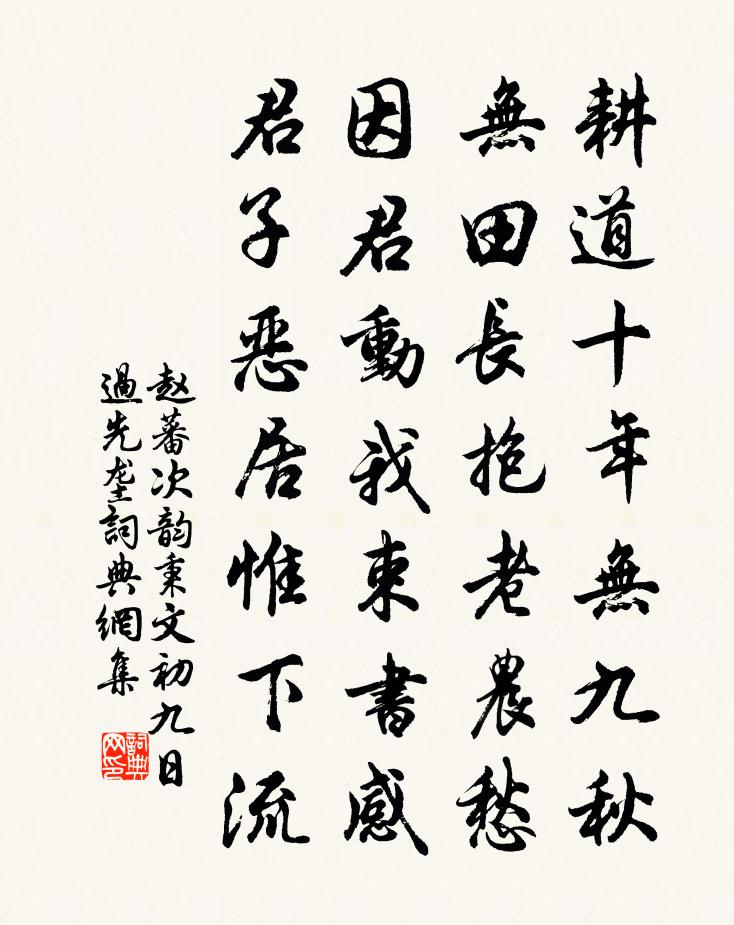 耕道十年無九秋
無田長抱老農愁
因君動我束書感
君子惡居惟下流
赵蕃次韵秉文初九日
過先垄詞典網集
詞典网印